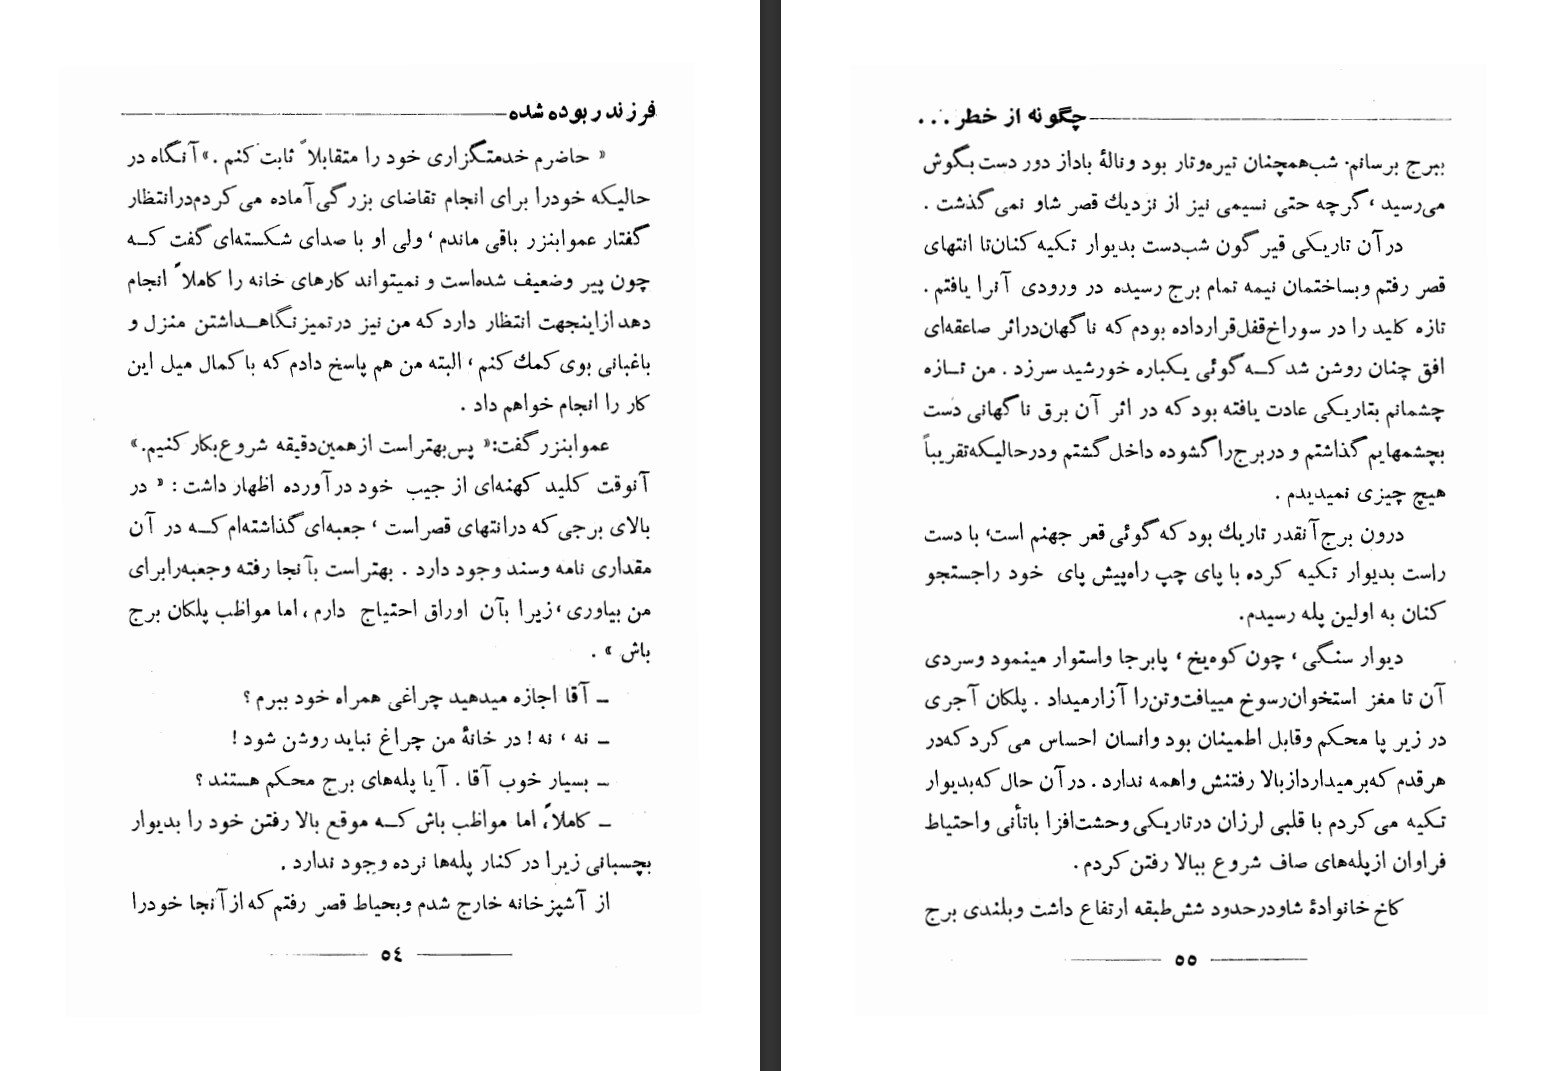 فرزند ربوده شده
« حاضرم خدمتگزاری خود را متقابلاً ثابت کنم .» آنگاه در
حالیکه خودرا برای انجام تقاضای بزرگی آماده می کردم در انتظار
گفتار عمو ابنزر باقی ماندم ، ولی او با صدای شکسته‌ای گفت که
چون پیر وضعیف شده‌است و نمیتواند کارهای خانه را کاملاً انجام
دهد ازاینجهت انتظار دارد که من نیز درتمیز نگاهداشتن منزل و
باغبانی بوی کمك کنم ، البته من هم پاسخ دادم که با کمال میل این
کار را انجام خواهم داد .
عمو ابنزر گفت:« پس بهتر است از همین‌دقیقه شروع بکار کنیم.»
آنوقت کلید کهنه‌ای از جیب خود درآورده اظهار داشت : « در
بالای برجی که درانتهای قصر است ، جعبه‌ای گذاشته‌ام که در آن
مقداری نامه وسند وجود دارد . بهتر است بآنجا رفته وجعبه‌را برای
من بیاوری ، زیرا بآن اوراق احتیاج دارم ، اما مواظب پلکان برج
باش » .
ــ آقا اجازه میدهید چراغی همراه خود ببرم ؟
ــ نه ، نه ! در خانهٔ من چراغ نباید روشن شود !
ــ بسیار خوب آقا . آیا پله‌های برج محکم هستند ؟
ــ کاملاً، اما مواظب باش که موقع بالا رفتن خود را بدیوار
بچسبانی زیرا در کنار پله‌ها نرده وجود ندارد .
از آشپزخانه خارج شدم وبحیاط قصر رفتم که از آنجا خودرا
٥٤
چگونه از خطر ...
ببرج برسانم. شب همچنان تیره‌وتار بود ونالهٔ باد از دور دست بگوش
می‌رسید ، گرچه حتی نسیمی نیز از نزدیك قصر شاو نمی گذشت .
در آن تاریکی قیر گون شب‌دست بدیوار تکیه کنان‌تا انتهای
قصر رفتم وبساختمان نیمه تمام برج رسیده در ورودی آنرا یافتم .
تازه کلید را در سوراخ قفل قرار داده بودم که ناگهان در اثر صاعقه‌ای
افق چنان روشن شد که گوئی یکباره خورشید سرزد . من تازه
چشمانم بتاریکی عادت یافته بود که در اثر آن برق ناگهانی دست
بچشمهایم گذاشتم و در برج را گشوده داخل گشتم ودرحالیکه تقریباً
هیچ چیزی نمیدیدم .
درون برج آنقدر تاریك بود که گوئی قعر جهنم است، با دست
راست بدیوار تکیه کرده با پای چپ راه پیش پای خود را جستجو
کنان به اولین پله رسیدم.
دیوار سنگی ، چون کوه یخ ، پابرجا واستوار مینمود وسردی
آن تا مغز استخوان رسوخ مییافت وتن را آزار میداد . پلکان آجری
در زیر پا محکم وقابل اطمینان بود وانسان احساس می کرد که در
هر قدم که برمیدارد از بالا رفتنش واهمه ندارد . در آن حال که بدیوار
تکیه می کردم با قلبی لرزان در تاریکی وحشت‌افزا باتأنی واحتیاط
فراوان از پله‌های صاف شروع ببالا رفتن کردم .
کاخ خانوادهٔ شاو در حدود شش طبقه ارتفاع داشت وبلندی برج
٥٥